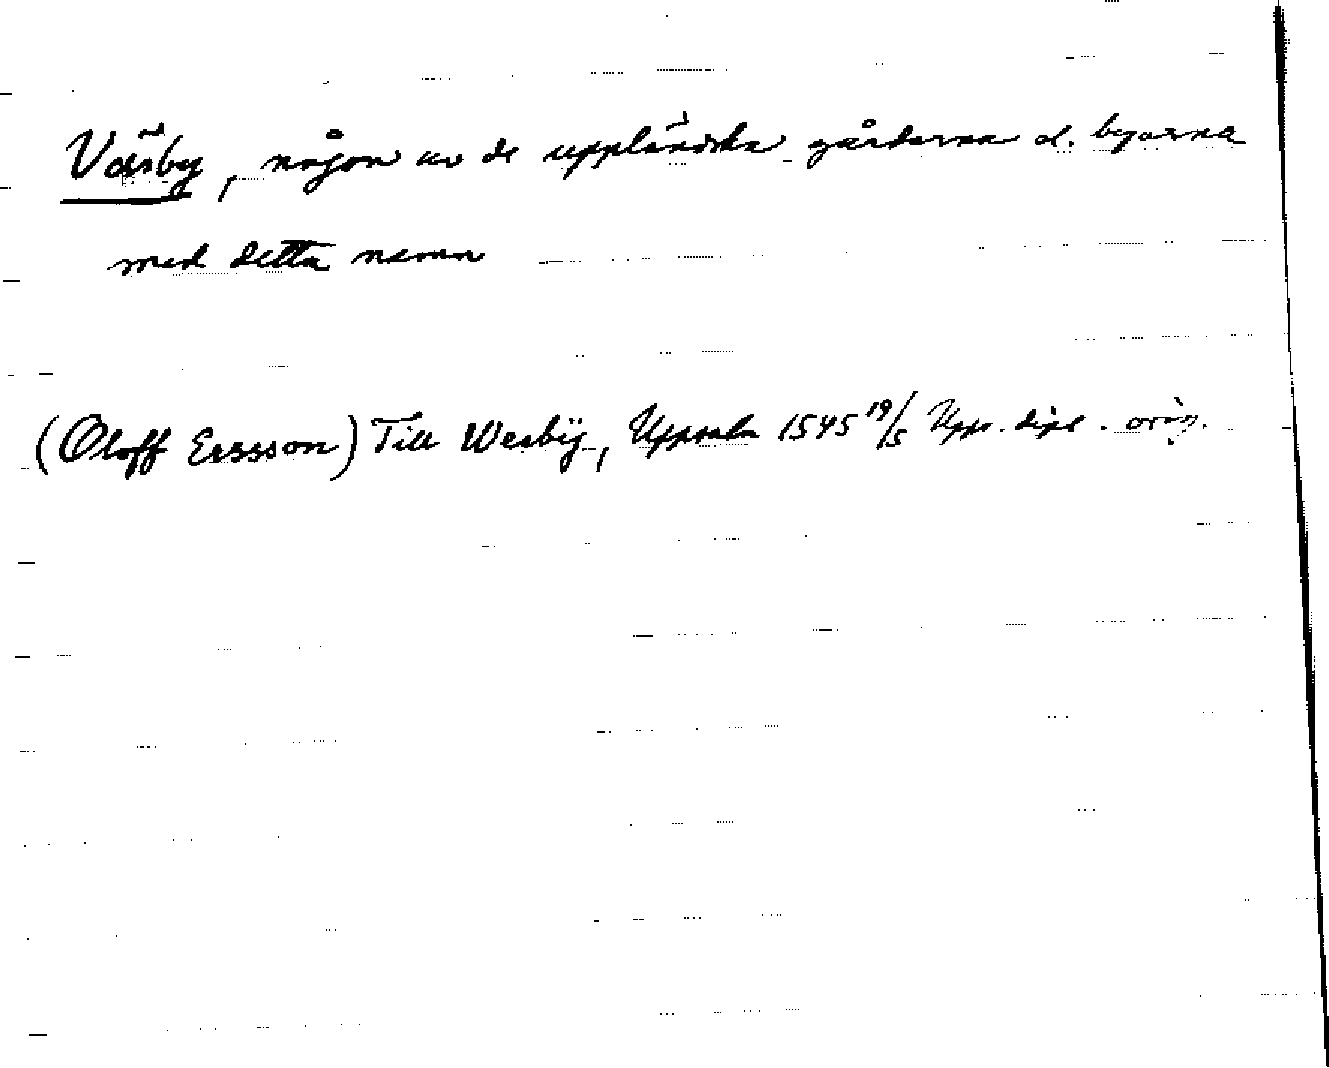 Väsby, någon av de uppländska gårderna el. byarna
med detta namn
(Oloff Erssson) Till Wesbÿ, Uppsala 1545 19/5 Upps. dipl. orig.